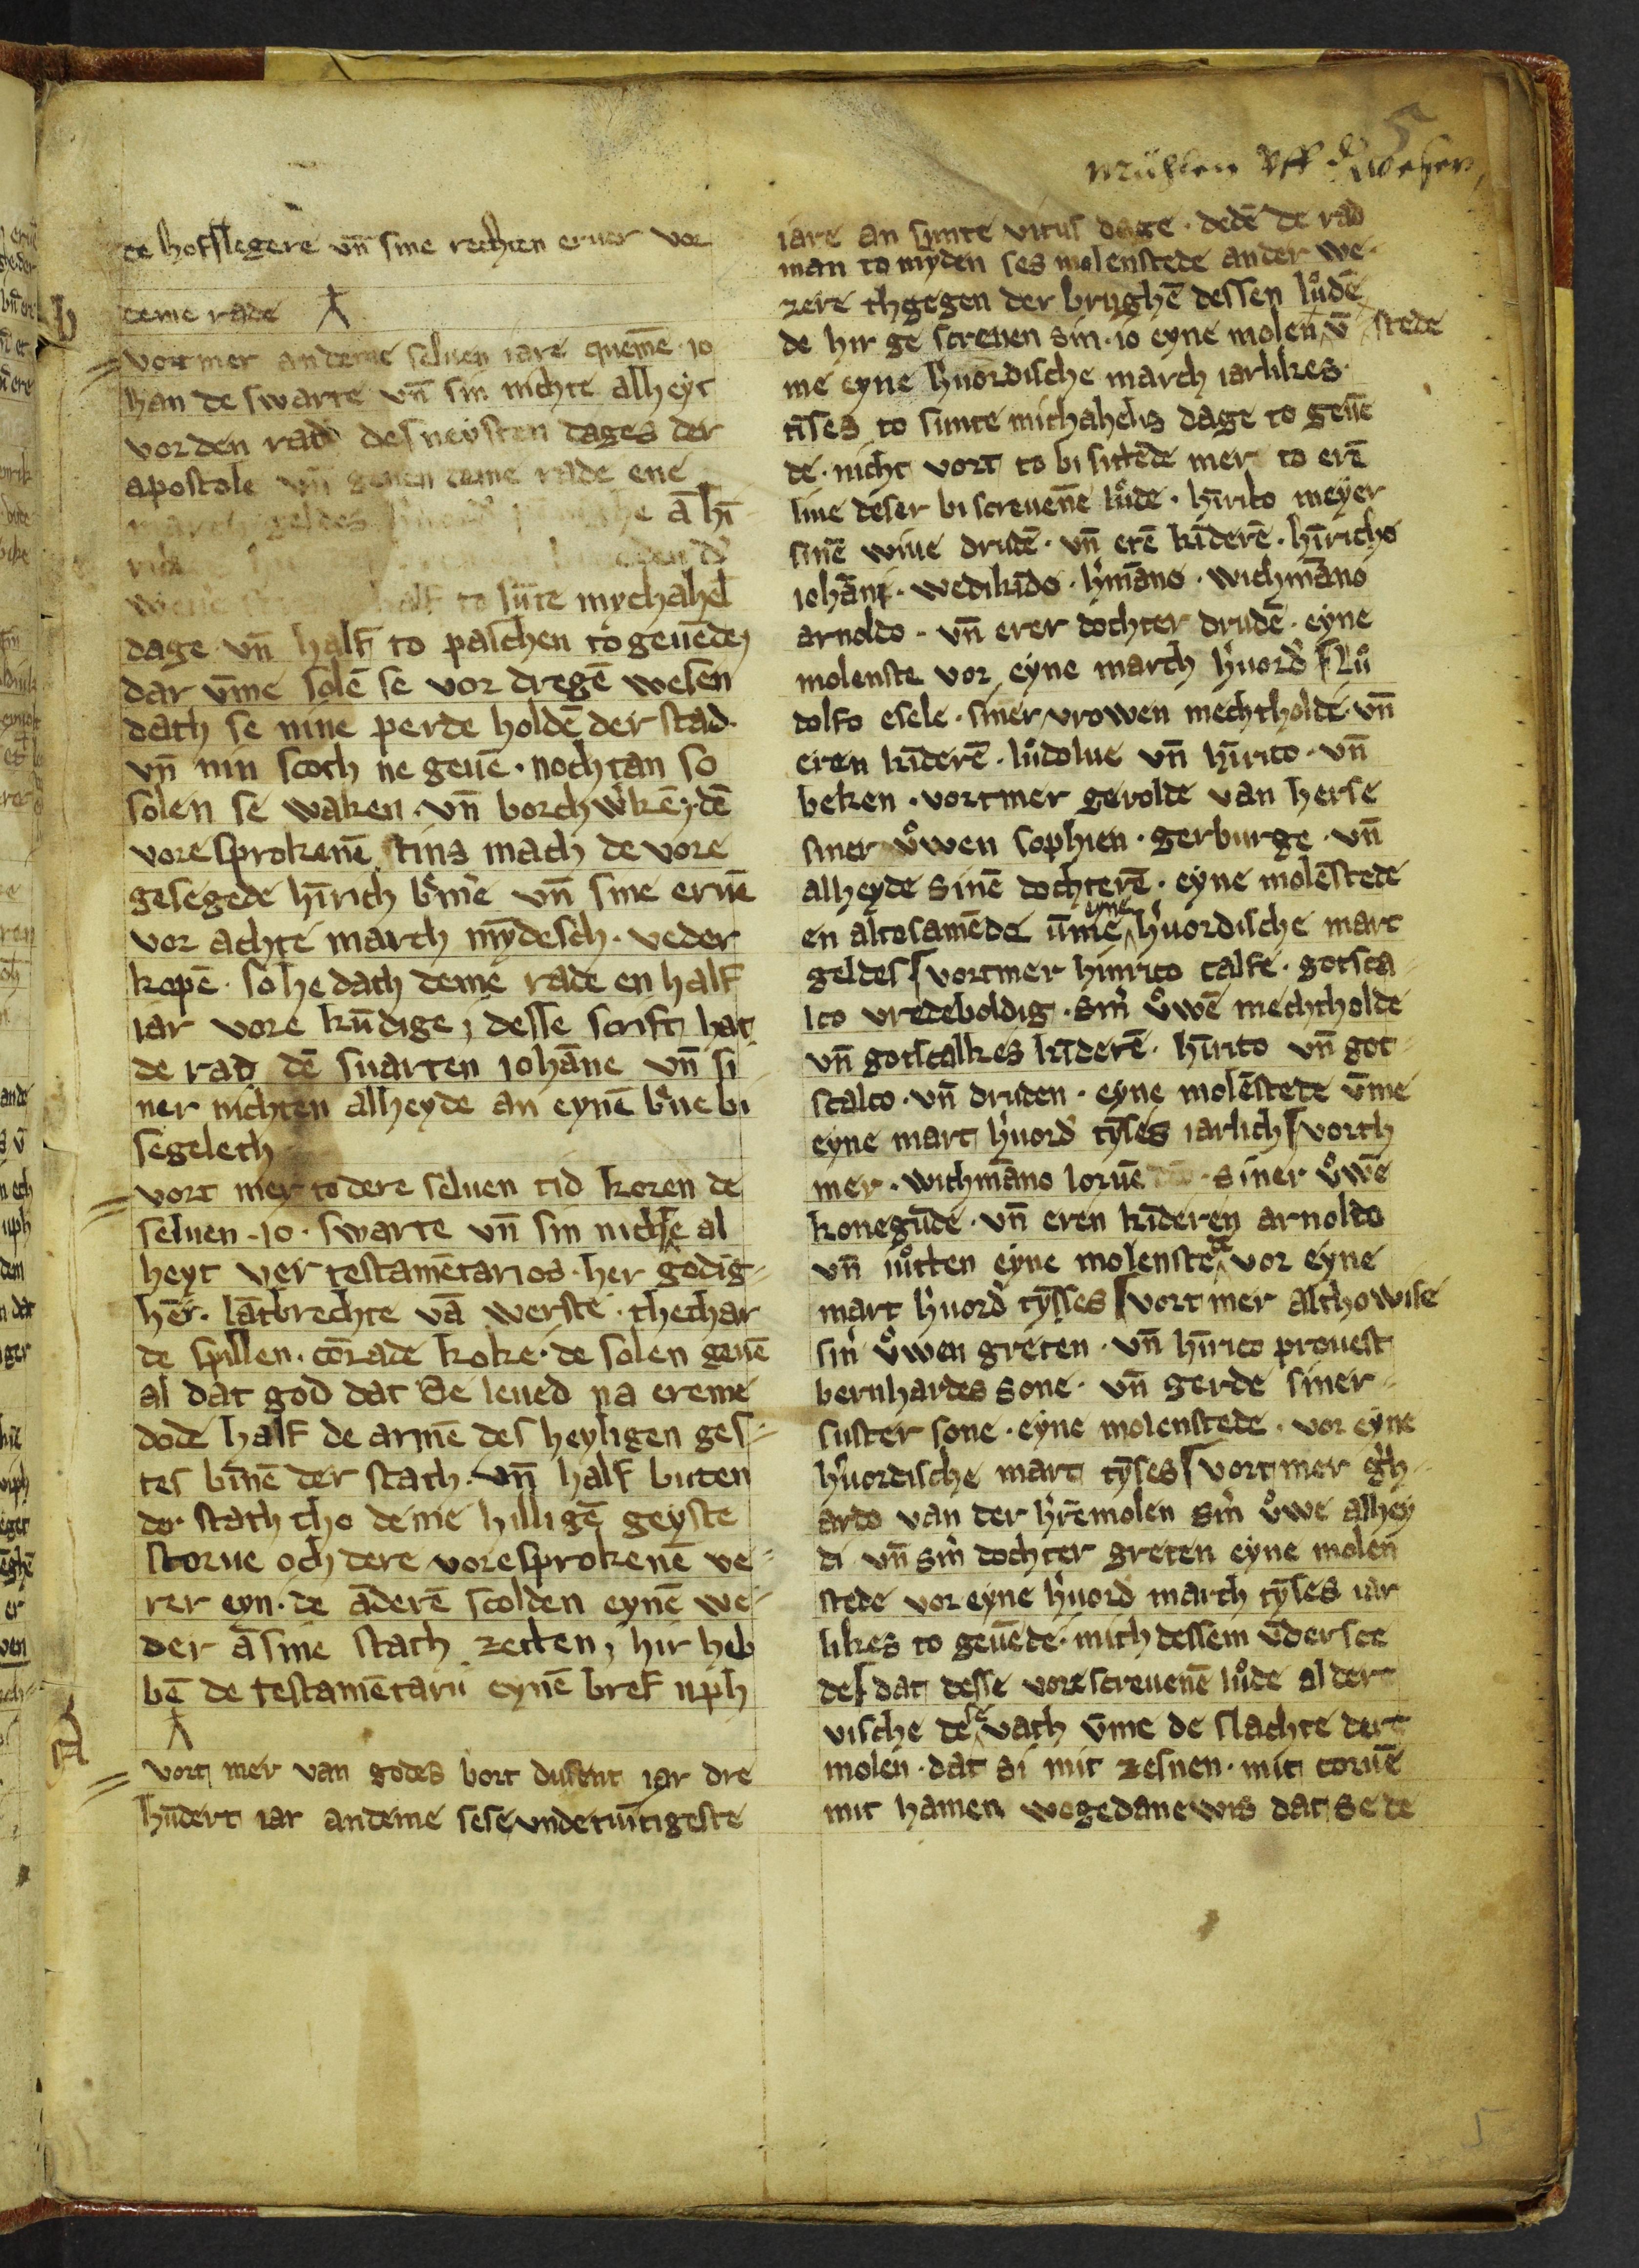 5
Mühlen Vff d' Weser,
de hofslegere vn̄ sine rechten eruer vor
deme rade
vort mer an deme seluen iare quemē · io
han de swarte vn̄ sin nichte alheyt
vor den rad des neysten dages der
apostole vn̄ geuen deme rade ene
march geldes ā hī
half to sūte mychahel
dage vn̄ half to paschen to geuēde,
dar v̄me solē se vor dregē wesen
dath se nine perde holdē der stad.
vn̄ nin scoch ne geuē · noch tan so
solen se waken · vn̄ borch w'kē, dē
vore sprokenē tins mach de vore
gesegede hīrich b'me vn̄ sine eruē
vor achte march mȳdesch · veder
kopē · so he dath deme rade en half
iar vore kūdige, desse scrift hat
de rad dē suarten iohāne vn̄ si
ner nichten alheyde an eynē b'ue bi
segeleth
vort mer to dere seluen tid koren de
seluen · io · swarte vn̄ sin nichte al
heyt ver testamētarios · her godig-
hēr · lātbrechte vā werste · thechar
de spillen · cōrade koke · de solen geuē
al dat god dat se leued na ereme
dode half de armē des heyligen ges-
tes binē der stath · vn̄ half buten
do · stath tho deme hilligē geyste
storue och dere vore sprokenē ve-
rer eyn · de āderē scolden eynē we-
der ā sine stath zetten, hir heb
bē de testamētarii eynē bref vph
vort mer van godes bort dusent iar dre
hūdert iar an deme sese vnde twītigeste
iare an sunte vitus dage · dedē de rad
man to myden ses molenstede an der we-
zere thgegen der brughē dessen lu̇dē
de hir ge screuen sin · io eyne molen stede v̄
me eyne h'uordische march iarlikes
tīses to sunte michahelis dage to geuē
de · nicht vort to bi sittēde mer to erē
liue deser bi screuenē lu̇de · hīrico meyer
sinē wiue drudē · vn̄ erē kīderē · hīricho
iohāni · wedikīdo · h'māno · wichmāno
arnoldo · vn̄ erer dochter drudē · eyne
molenste vor eyne march h'uord' lu̇
dolfo esele · siner vrowen mechtholde · vn̄
eren kīderē · lu̇dolue vn̄ hīrico · vn̄
beken · vortmer gerolde van herse
siner v̇wen sophien · gerburge · vn̄
alheyde sinē dochterē · eyne molēstede
en altosamēde v̄me eyne h'uordische mart
geldes vortmer hinrico calfe · gotsca-
lco vredeboldig · sin' v̇wē mechtholde
vn̄ gotscalkes kīderē · hīrico vn̄ got-
scalco · vn̄ druden · eyne molēstede v̄me
eyne mart h'uord' tȳses iarlich vorth
mer · wichmāno loruē · siner v̇wē
konegūde · vn̄ eren kīderen arnoldo
vn̄ iu̇tten eyne molenstede vor eyne
mart h'uord' tȳsses vort mer althowise
sin' v̇wen greten · vn̄ hīrico prouest
bernhardes sone · vn̄ gerde siner-
suster sone · eyne molenstede · vor eyne
h'uordische mart tȳses vortmer g'h-
ardo van der h'rēmolen sin' v̇we alhey
di vn̄ sin' dochter greten eyne molen
stede vor eyne h'uord' march tȳses iar
likes to geuēde · mith dessem v̄dersce
de dat desse vore screuenē lu̇de al dert
vische dese vath v̄me de slachte dert
molen · dat si mit zesnen · mit coruē
mit hamen wegedanewis dat se de
5